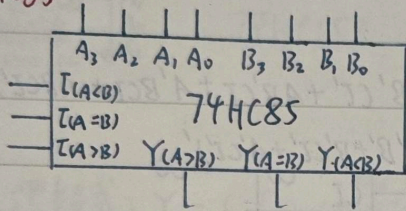 A₃ A₂ A₁ A₀ B₃ B₂ B₁ B₀
I(A<B)
74HC85
I(A=B)
I(A>B) Y(A>B) Y(A=B) Y(A<B)